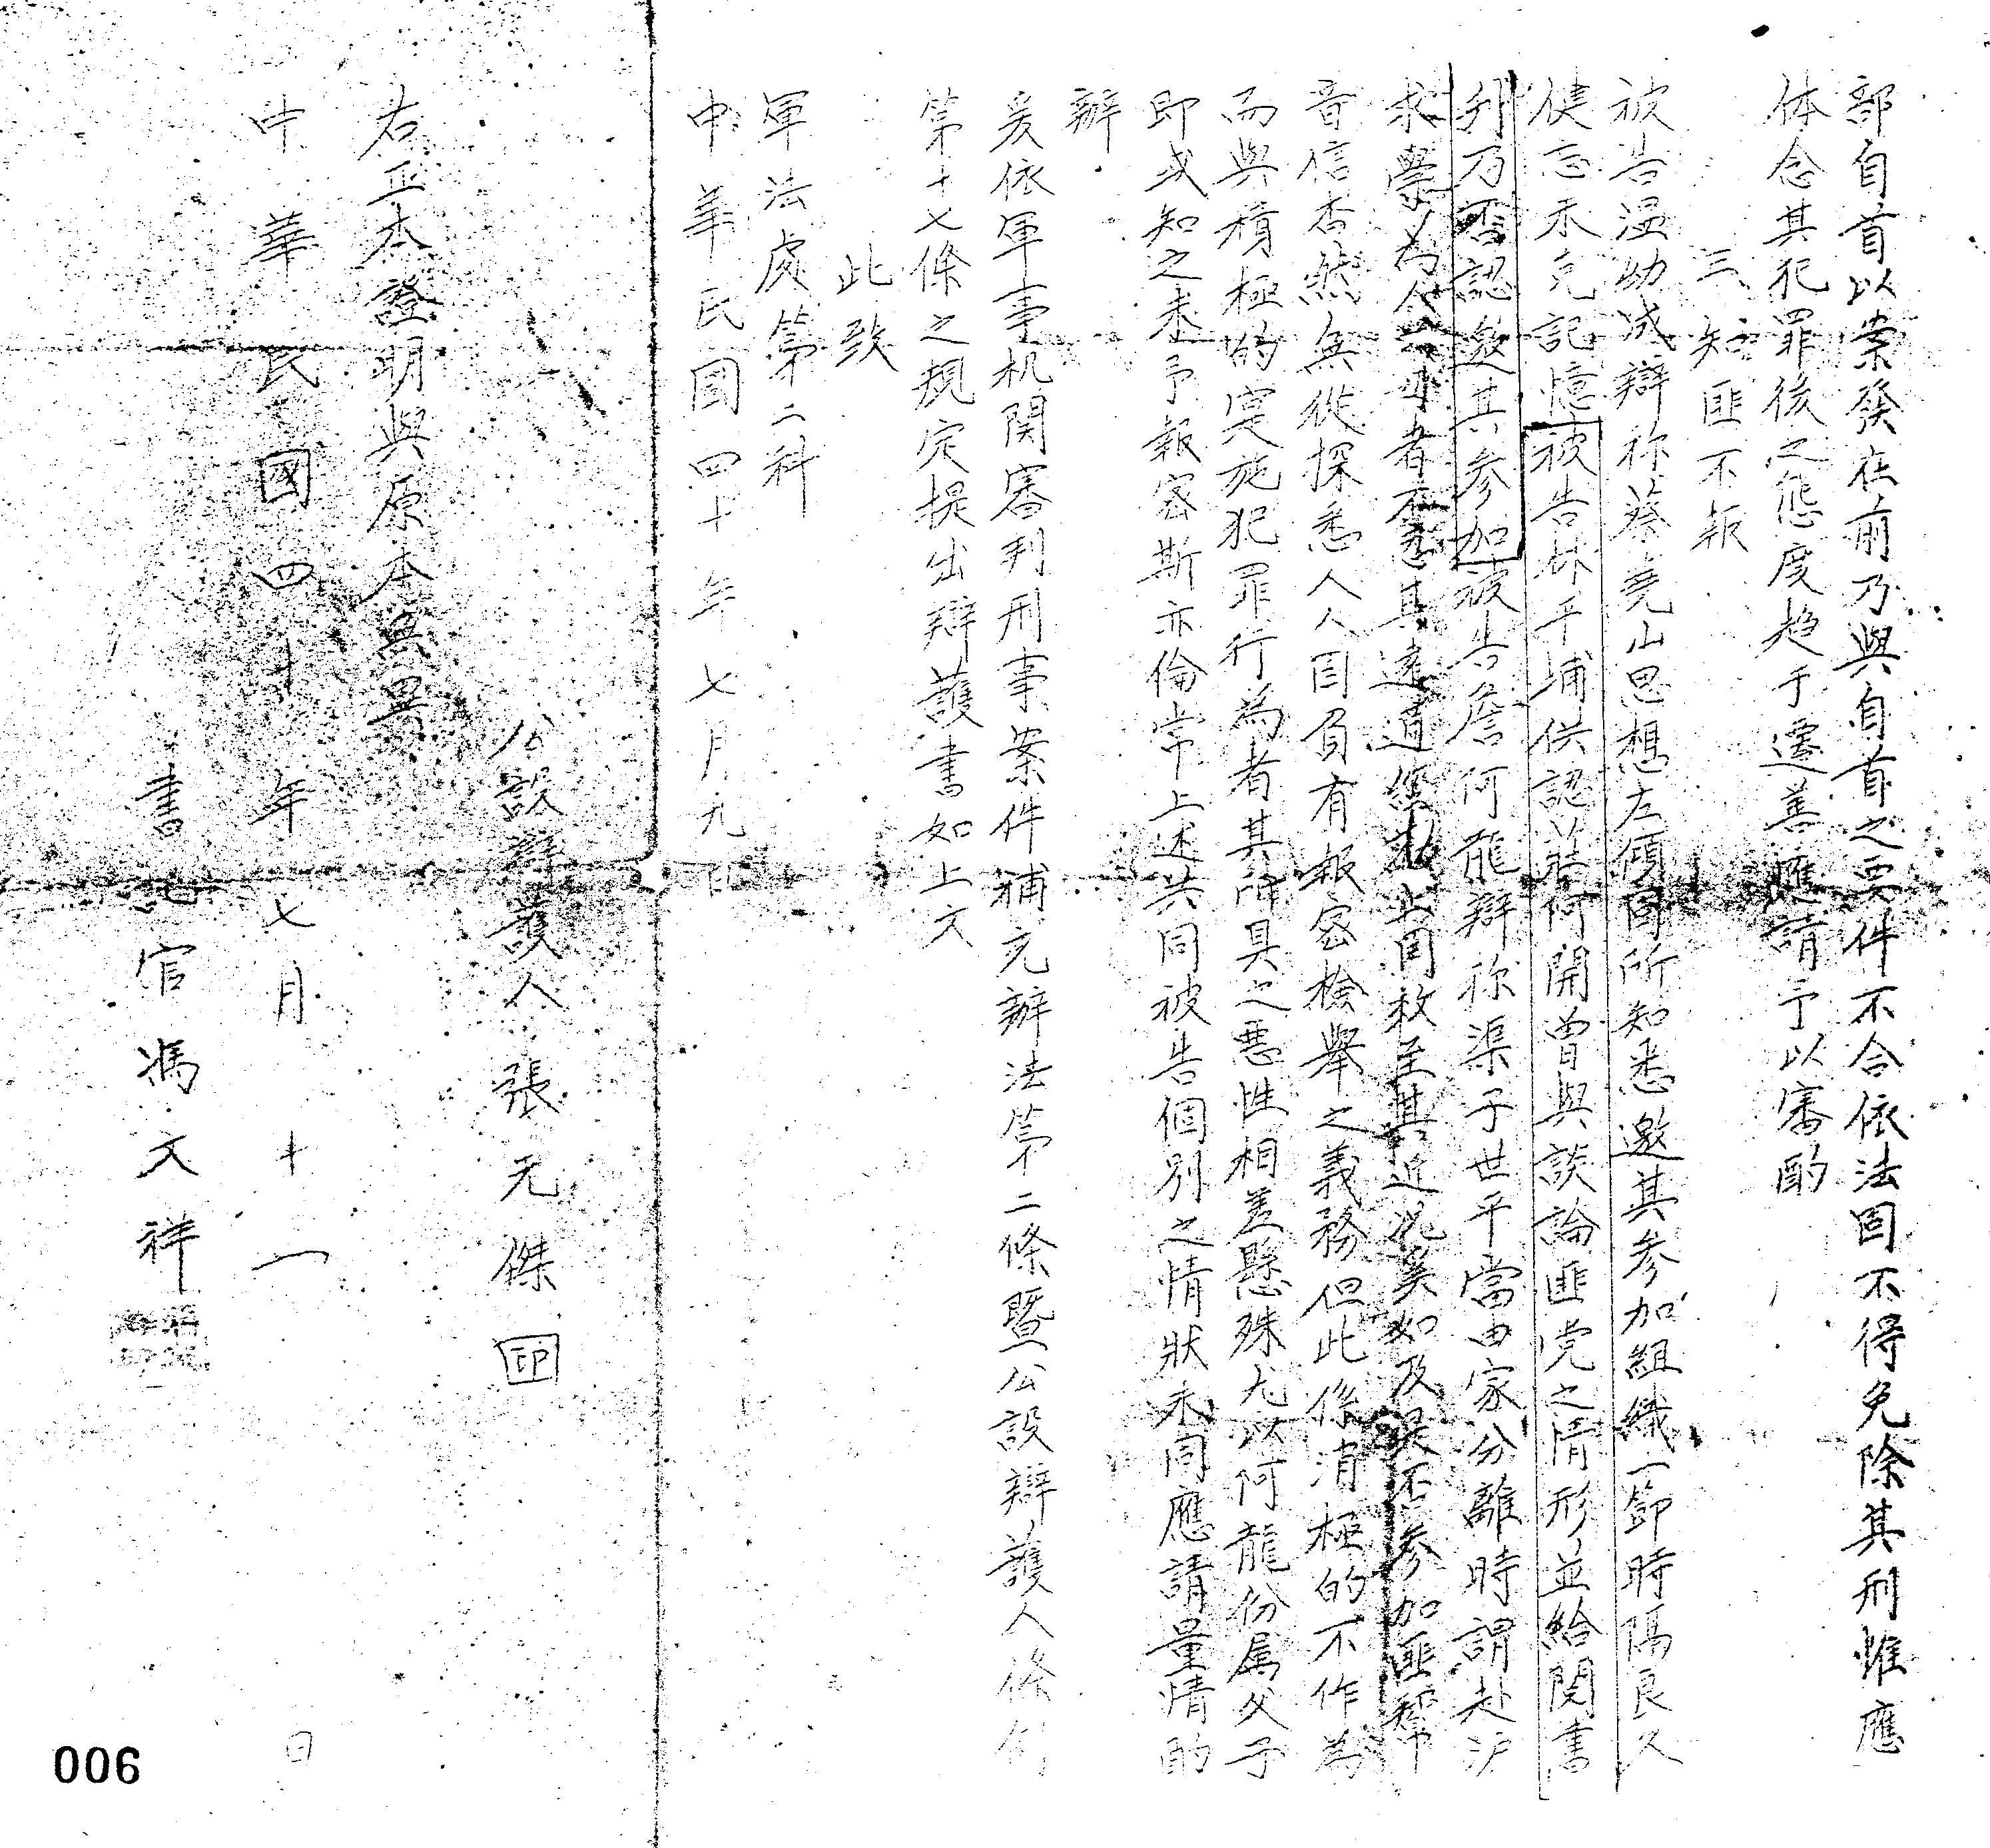 部自首以案發在前乃與自首之要件不合依法固不得免除其刑惟應
体念其犯罪後之態度趋于遷善應請予以審酌
三、知匪不報
被告温幼成辯称蔡尭山思想左傾固所知悉邀其参加組織一節時隔良久
健忘未克記憶被告林平埔供認若何開曾與談論匪党之情形並給閱書
刋乃否認邀其参加被告詹何龍辯称渠子世平當由家分離時謂赴沪
求學以為人父者不悉其遠道經商出国故至其近况矣如及是否参加匪幇
音信杳然無從探悉人人固負有報密檢舉之義務但此係消極的不作為
而與積極的实施犯罪行為者其所具之悪性相差懸殊尤以何龍份属父子
即或知之未予報密斯亦倫常上述共同被告個別之情狀未同應請量情酌
辦
爰依軍事机関審判刑事案件補充辦法第二條暨公設辯護人條例
第十七條之規定提出辯護書如上文
此致
軍法處第二科
中華民国四十年七月九日
公設辯護人張元傑 印
右正本證明與原本無異
中華民國四十年七月十一日
書記官馮文祥
006